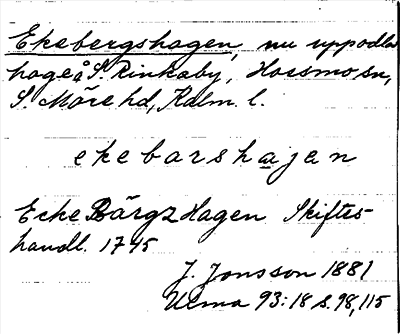 Ekebergshagen, nu uppodlad
hage å S. Rinkaby, Hossmo sn,
S. Möre hd, Kalm. l.
ekebarshagen
Ecke Bärgz Hagen Skiftes-
handl. 1745
J. Jonsson 1881
Ulma 93:18 s. 98, 115